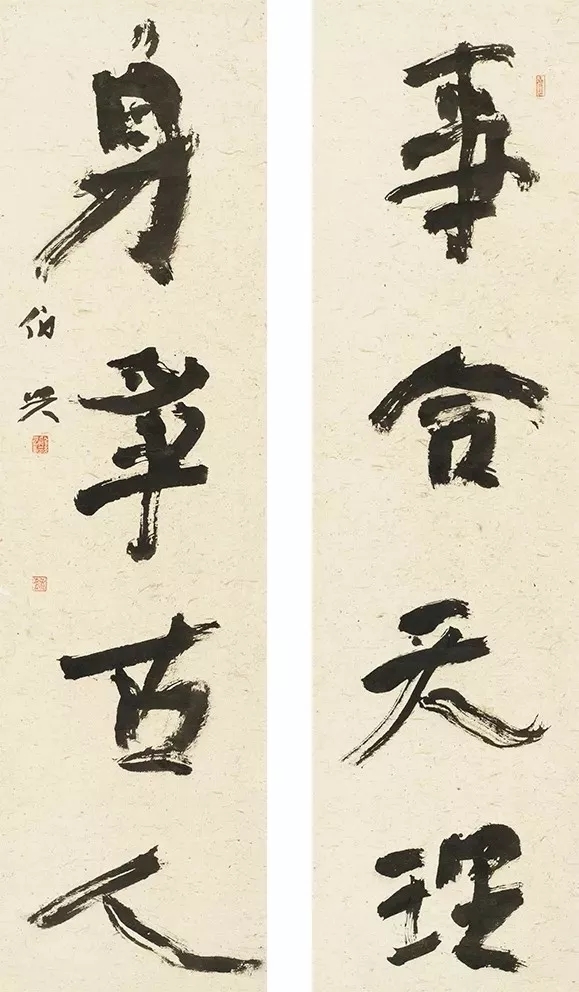 事合天理
身古人
伯兴